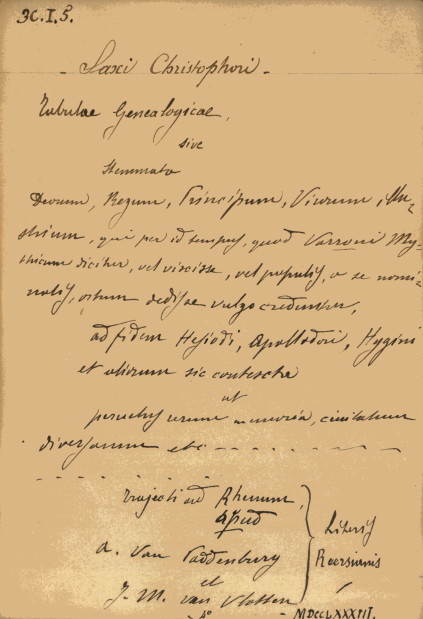 3C.I.5.
- Saxi Christophori -
Tabulae Genealogicae,
sive
Stemmata
Deorum, Regum, Principum, Virorum, Illu=
strium, qui per id tempus, quod Varroni My=
thicum dicitur, vel vixisse, vel populis, a se nomi=
natis, ortum dedisse vulgo creduntur,
ad fidem Hesiodi, Apollodori, Hygini
et aliorum sic contexta
ut
rerum memoria, civitatum
diversarum etc
Trajecti ad Rhenum,
apud
A. Van Paddenburg
et
J. M. van Vloten
Literis
Reersianis
A° MDCCLXXXIII.